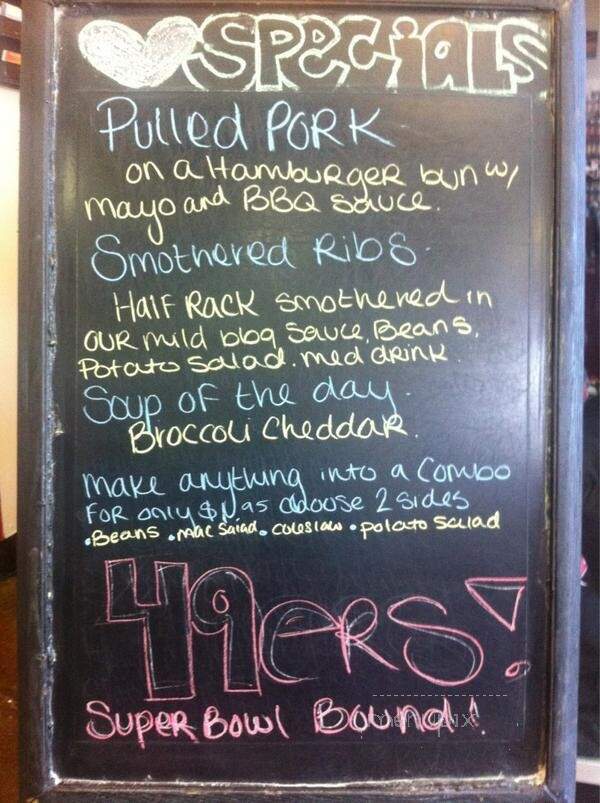 SPECiaLS
Pulled PORK
on a HambuRgeR bun w/
mayo and BBQ Sauce.
Smothered Ribs.
Half Rack smothered in
OUR mild bbq Sauce, Beans,
Potato Salad. med dRink.
Soup of the day.
Broccoli Cheddar.
make anything into a Combo
FOR only $ 95 choose 2 sides
•Beans •mac Salad• coleslaw •potato salad
49eRS!
SupeR Bowl Bound!